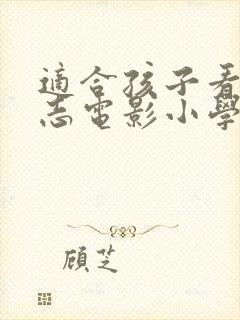 適合孩子看
志電影小學
顧芝